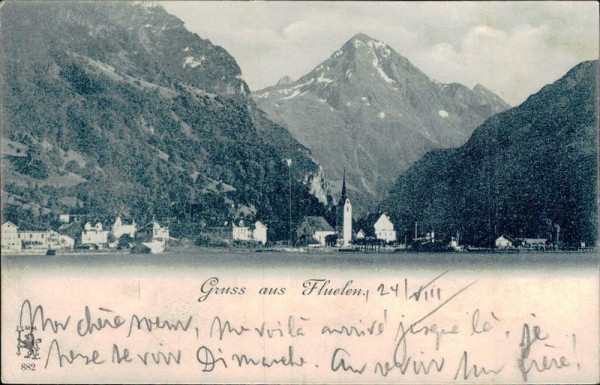 Gruss aus Fluelen, 24/VIII
Mon chère soeur, me voilà arrivé jusque là. je
de revoir Dimanche. Au revoir ton frère!
882